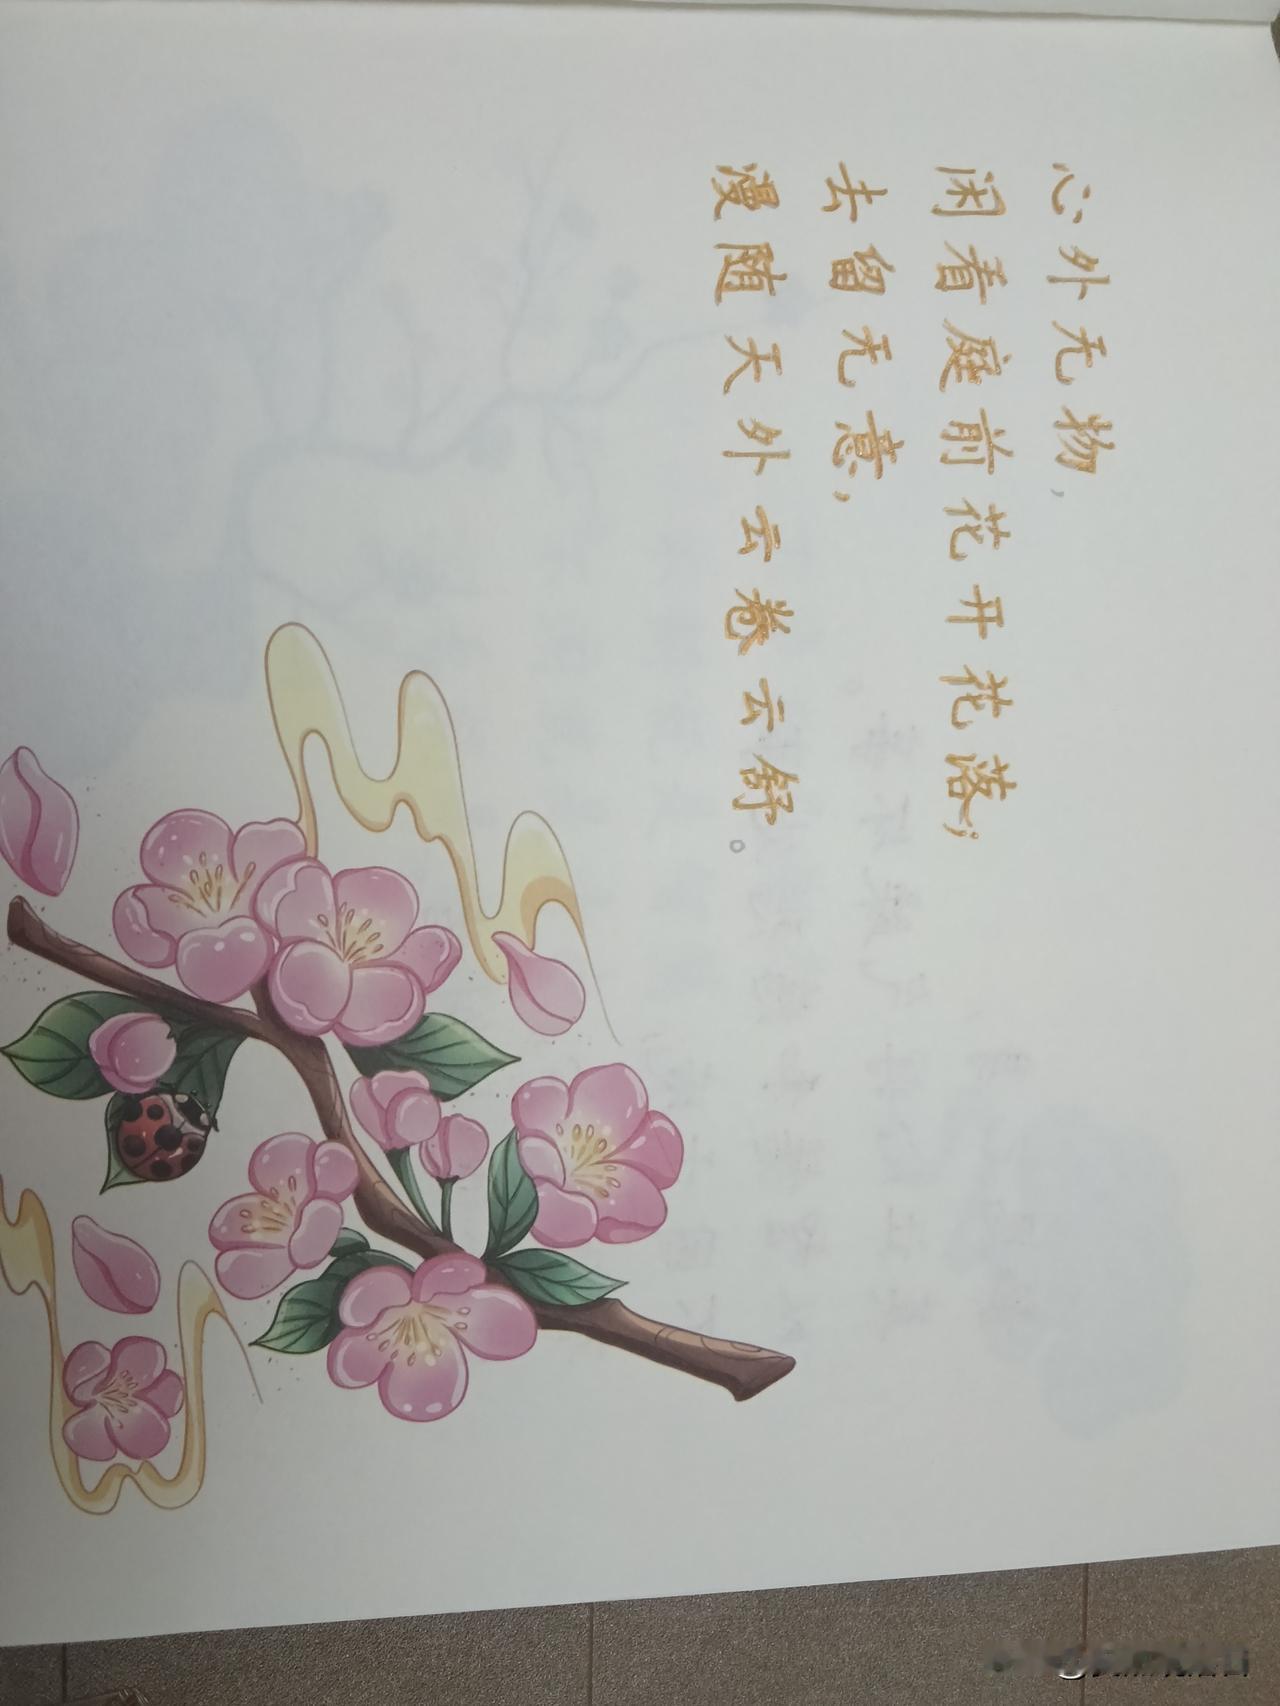 心外无物，
闲看庭前花开花落；
去留无意，
漫随天外云卷云舒。